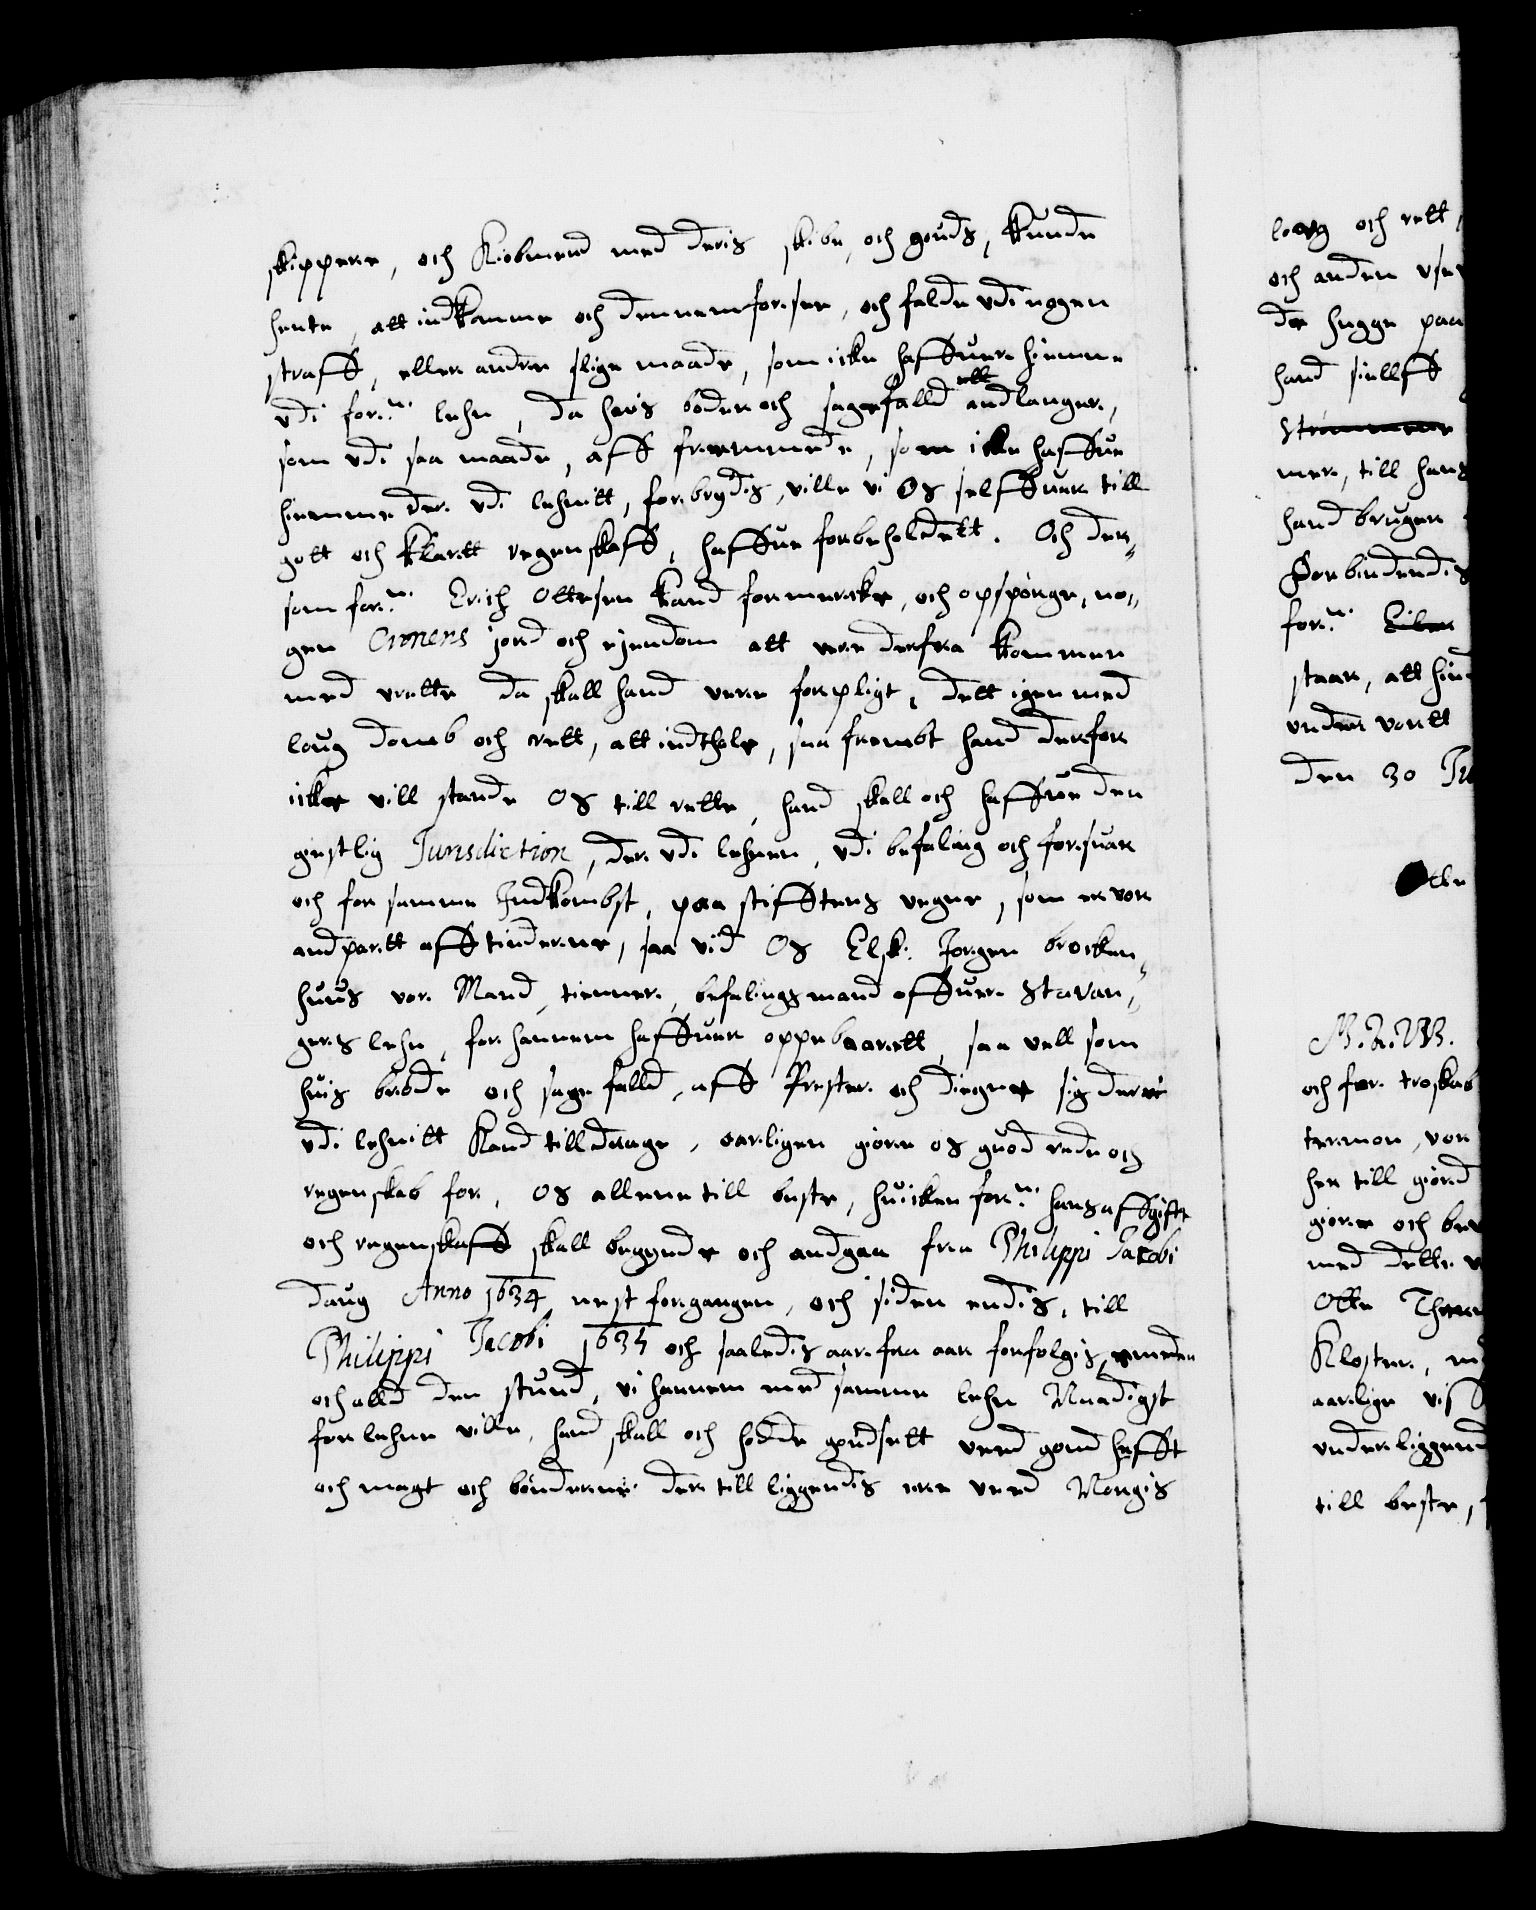 skippere, och Kiobmend med deris skibe, och gouds, kunde
hente, att indkomme och dennem forsee, och falde udi nogen
straff, eller andre slige maade, som icke haffuer hiemme
udi for:ne lehn, da hvis bøder och sagefalld ell andlanger,
som udi saa maade, aff fremmede, som icke haffue
hiemme der udi lehnitt, forbrydis, ville vi Os selffuer till
gott och klartt regenskaff, haffue forbeholdett. Och der„
som for:ne Erich Ottesen kand formercke, och opspørge, no„
gen Cronens jord och ejendom att vere derfra kommen
med urette da skall hand vere forpligt, dett igen med
loug domb och rett, att indthale, saa frembt hand derfor
icke vill stande Os till rette, hand skall och haffue den
giestlig Jurisdiction, der udi lehnen, udi befaling och forsuar
och for samme Indkombst, paa stifftens vegne, som er vor
andpartt aff tinderne, saa vid Os Elsk: Jorgen brocken„
huus vor Mand, tiener, befalingsmand offuer Stavan„
gers lehn, for hannem haffuer oppebaarett, saa vell som
huis brøde och sagefalld, aff Prester och diegne sig der
udi lehnitt kand tilldrage, aarligen giøre os guod rede och
regenskab for, Os allene till beste, huilcken for:ne hans affgifft
och regenskaff skall begynde och andgaa fra Philippi Jacobi
daug Anno 1634 nest forgangen, och siden endis, till
Philippi Jacobi 1635 och saaledis aar fra aar forfølgis, emeden
och alld den stund, vi hannem med samme lehn Naadigst
forlehne ville, hand skall och holde goudsett ved goud hefft
och magt och bønderne der till liggendis ere ved Norgis
loug och rett,
och anden
de hugge paa
hand siellff
Strommene
mer, till hans
hand bruger
Forbindendis
for:ne Eiler
staar, att
under vortt
den 30
G. A. V.
och for troskab
termon, vor
her till giord
giøre och
med dette
Otte
Kloster,
aarlige
underliggend
till beste,